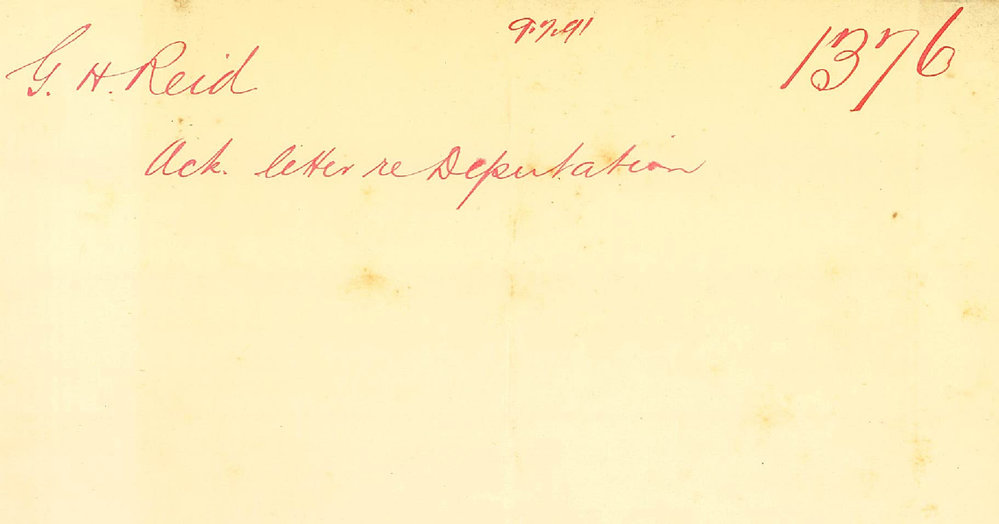 9.7.91
1376
G. H. Reid
Ack. letter re Deputation